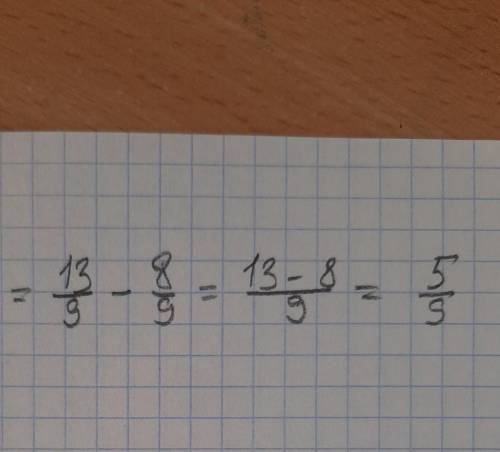 = 13/9 - 8/9 = (13 - 8)/9 = 5/9